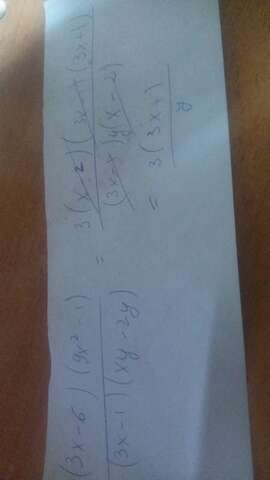 (3x-6)(9x²-1) / (3x-1)(xy-2y) = 3(x-2)(3x-1)(3x+1) / (3x-1)y(x-2)
= 3(3x+1) / y